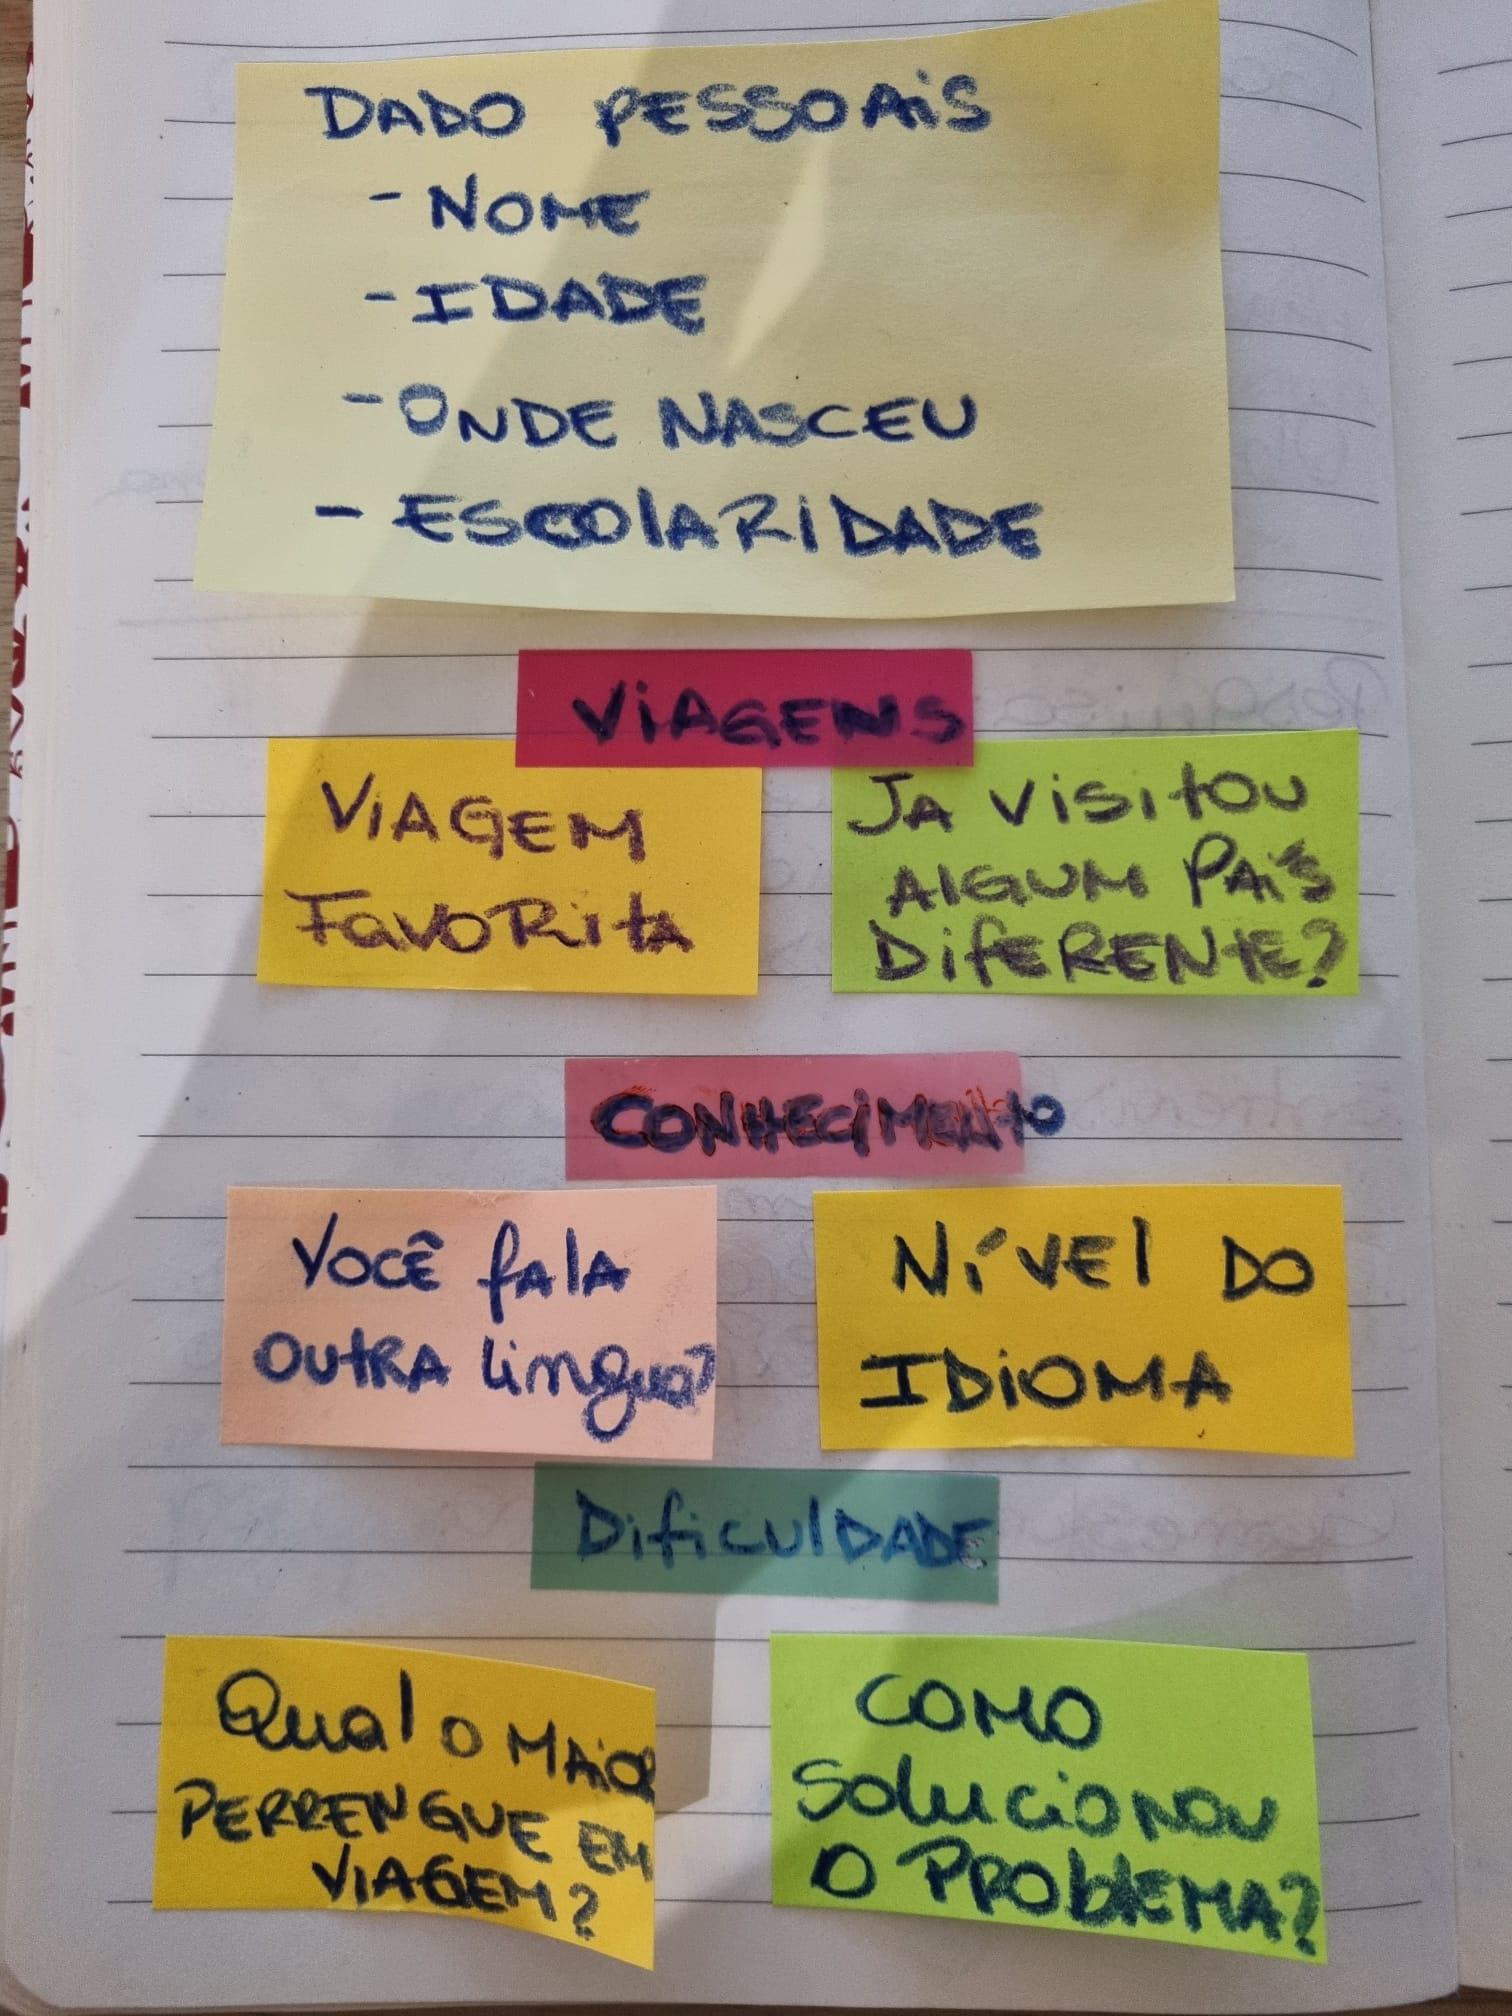 DADO PESSOAIS
- NOME
- IDADE
- ONDE NASCEU
- ESCOLARIDADE
VIAGENS
VIAGEM
FAVORITA
JA VISITOU
ALGUM PAÍS
DIFERENTE?
CONHECIMENTO
VOCÊ fala
OUTRA lingua?
NÍVEL DO
IDIOMA
DifiCULDADE
Qual O MAIOR
PERRENGUE EM
VIAGEM?
COMO
SOLUCIONOU
O PROBLEMA?